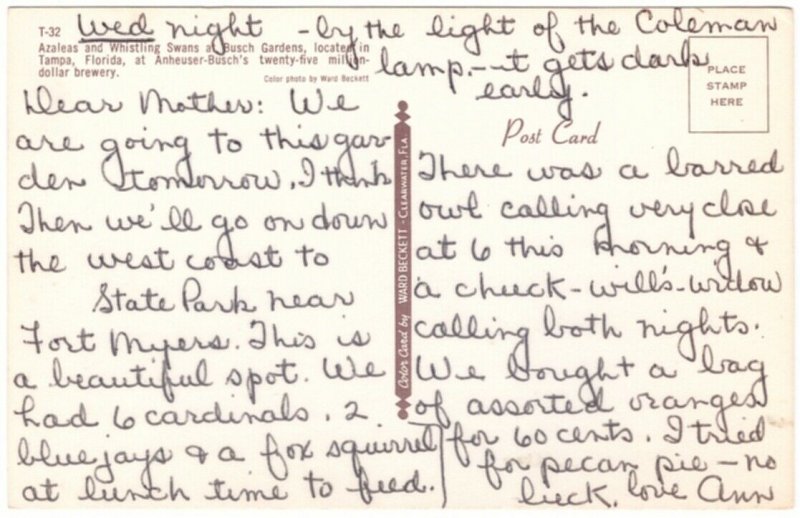 T-32
Azaleas and Whistling Swans at Busch Gardens, located in
Tampa, Florida, at Anheuser-Busch's twenty-five million-
dollar brewery.
Color photo by Ward Beckett
Wed night - by the light of the Coleman
lamp. - it gets dark
early.
PLACE
STAMP
HERE
Post Card
Color Card by WARD BECKETT - CLEARWATER, FLA.
Dear Mother: We
are going to this gar-
den tomorrow, I think
Then we'll go on down
the west coast to
State Park near
Fort Myers. This is
a beautiful spot. We
had 6 cardinals, 2
blue jays & a fox squirrel
at lunch time to feed.
There was a barred
owl calling very close
at 6 this morning &
a chuck-will's-widow
calling both nights.
We bought a bag
of assorted oranges
for 60 cents. I tried
for pecan pie - no
luck. love Ann